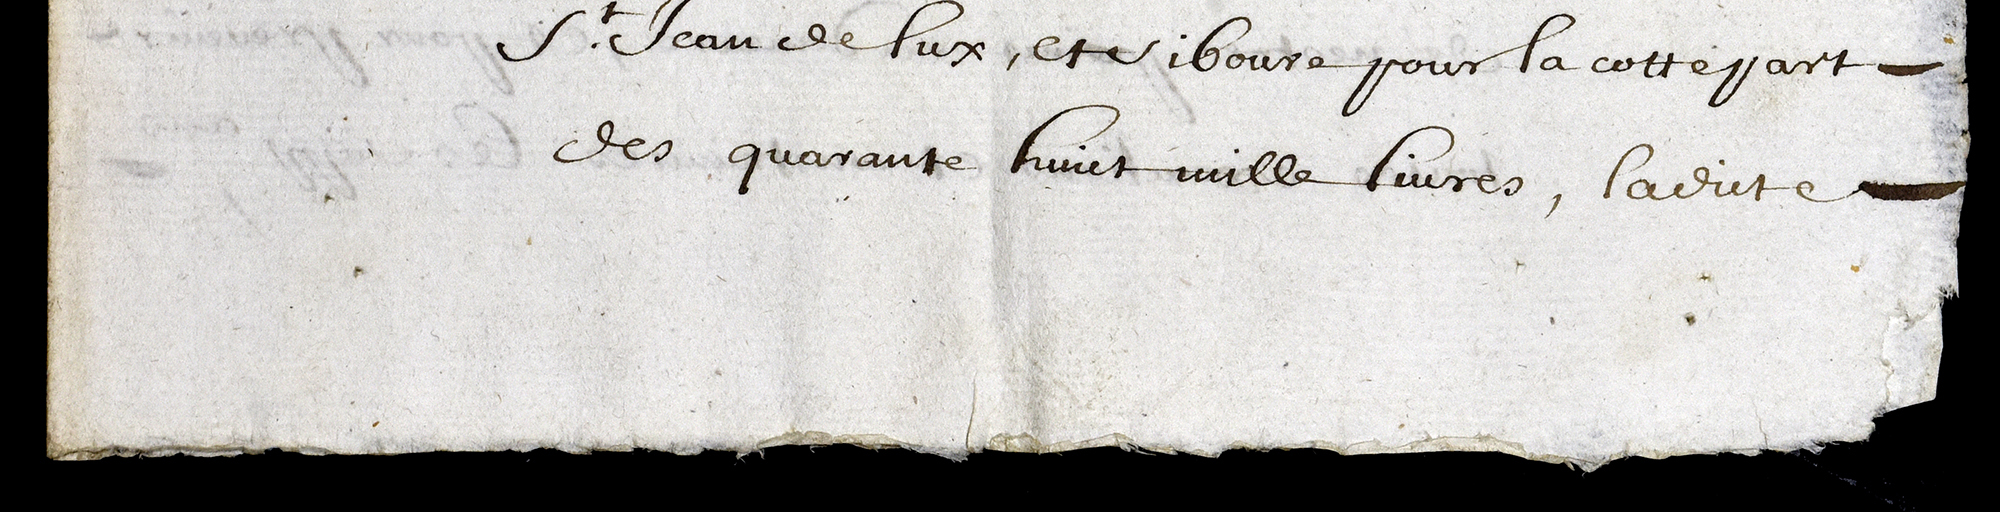 St. Jean de lux, et Siboure pour la cottepart
des quarante huict mille livres, ladicte